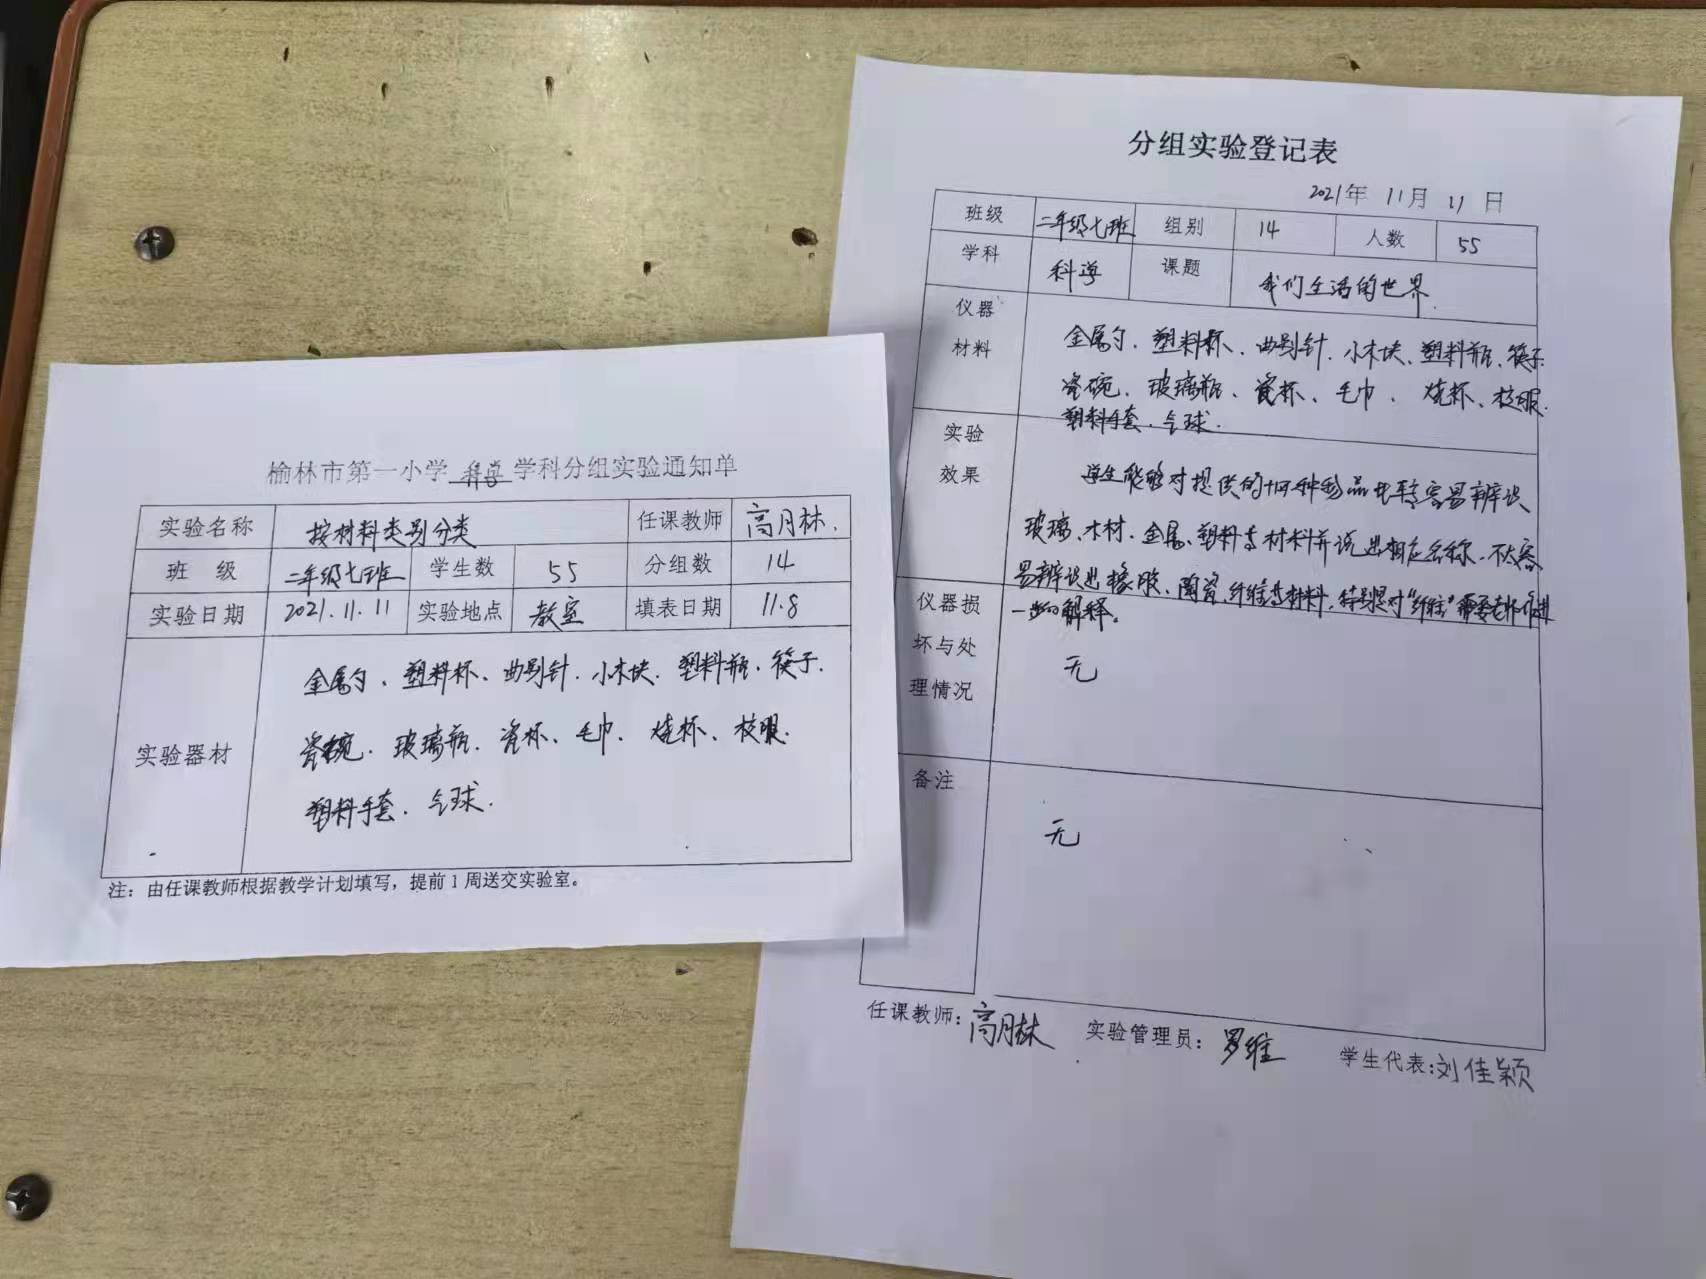 榆林市第一小学 科学 学科分组实验通知单
实验名称 按材料类别分类 任课教师 高月林.
班 级 二年级七班 学生数 55 分组数 14
实验日期 2021.11.11 实验地点 教室 填表日期 11.8
实验器材
金属勺、塑料杯、曲别针.小木块.塑料瓶.筷子.
瓷碗.玻璃瓶.瓷杯、毛巾、烧杯、校服.
塑料手套.气球.
注：由任课教师根据教学计划填写，提前1周送交实验室。
分组实验登记表
2021年 11月 11 日
班级 二年级七班 组别 14 人数 55
学科 科学 课题 我们生活的世界
仪器
材料
金属勺、塑料杯、曲别针.小木块、塑料瓶、筷子.
瓷碗、玻璃瓶、瓷杯、毛巾、烧杯、校服.
塑料手套.气球.
实验
效果
学生能够对提供的十四种物品比较容易辨识
玻璃、木材.金属、塑料等材料并说出相应名称.不太容
易辨识出橡胶、陶瓷.纤维等材料.特别是对“纤维”需要老师作进
一步的解释。
仪器损
坏与处
理情况
无
备注
无
任课教师：高月林 实验管理员：罗维 学生代表：刘佳颖